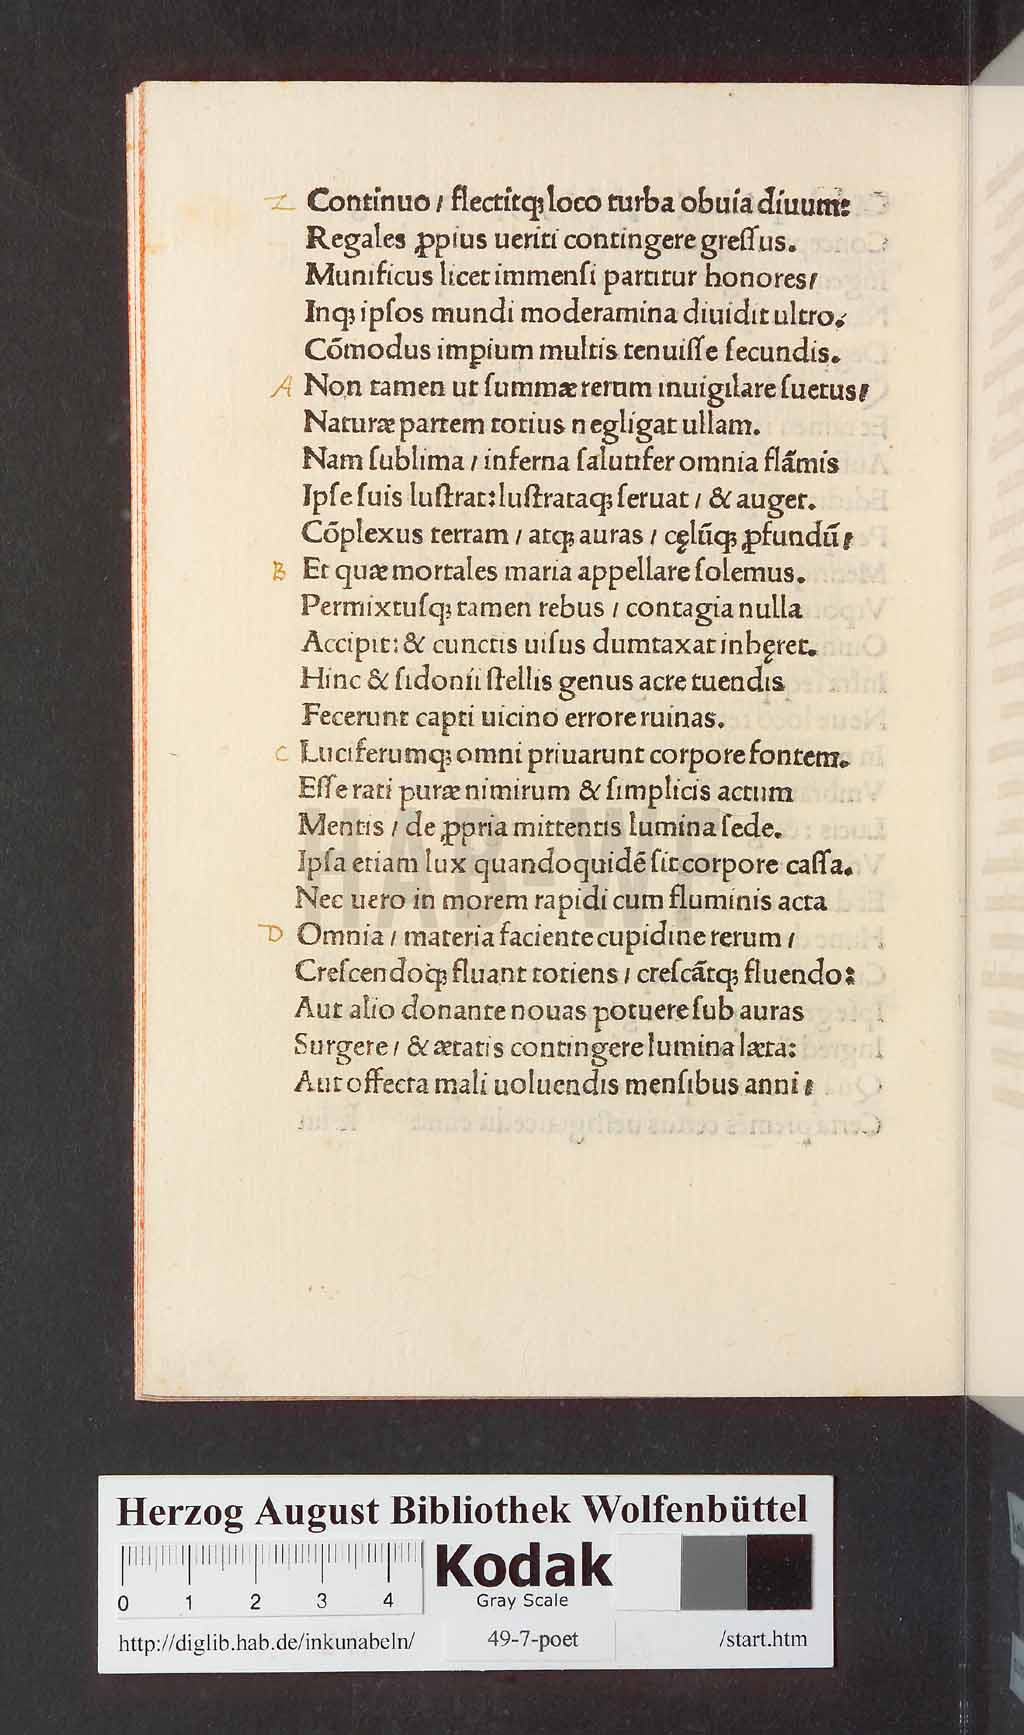 Z Continuo / flectitqꝫ loco turba obuia diuum:
Regales ꝓpius ueriti contingere greſſus.
Munificus licet immenſi partitur honores/
Inqꝫ ipſos mundi moderamina diuidit ultro.
Cōmodus impium multis tenuiſſe ſecundis.
A Non tamen ut ſummæ rerum inuigilare ſuetus/
Naturæ partem totius negligat ullam.
Nam ſublima / inferna ſalutifer omnia flāmis
Ipſe ſuis luſtrat: luſtrataqꝫ ſeruat / & auget.
Cōplexus terram / atqꝫ auras / cęlūqꝫ ꝓfundū/
B Et quæ mortales maria appellare ſolemus.
Permixtuſqꝫ tamen rebus / contagia nulla
Accipit: & cunctis uiſus dumtaxat inhęret.
Hinc & ſidonii ſtellis genus acre tuendis
Fecerunt capti uicino errore ruinas.
C Luciferumqꝫ omni priuarunt corpore fontem.
Eſſe rati puræ nimirum & ſimplicis actum
Mentis / de ꝓpria mittentis lumina ſede.
Ipſa etiam lux quandoquidē ſit corpore caſſa.
Nec uero in morem rapidi cum fluminis acta
D Omnia / materia faciente cupidine rerum /
Creſcendoqꝫ fluant totiens / creſcātqꝫ fluendo:
Aut alio donante nouas potuere ſub auras
Surgere / & ætatis contingere lumina læta:
Aut offecta mali uoluendis menſibus anni/
HAB-WF
Herzog August Bibliothek Wolfenbüttel
0 1 2 3 4
Kodak
Gray Scale
http://diglib.hab.de/inkunabeln/ 49-7-poet /start.htm